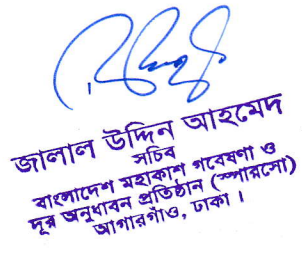 জালাল উদ্দিন আহমেদ
সচিব
বাংলাদেশ মহাকাশ গবেষণা ও
দূর অনুধাবন প্রতিষ্ঠান (স্পারসো)
আগারগাঁও, ঢাকা ।